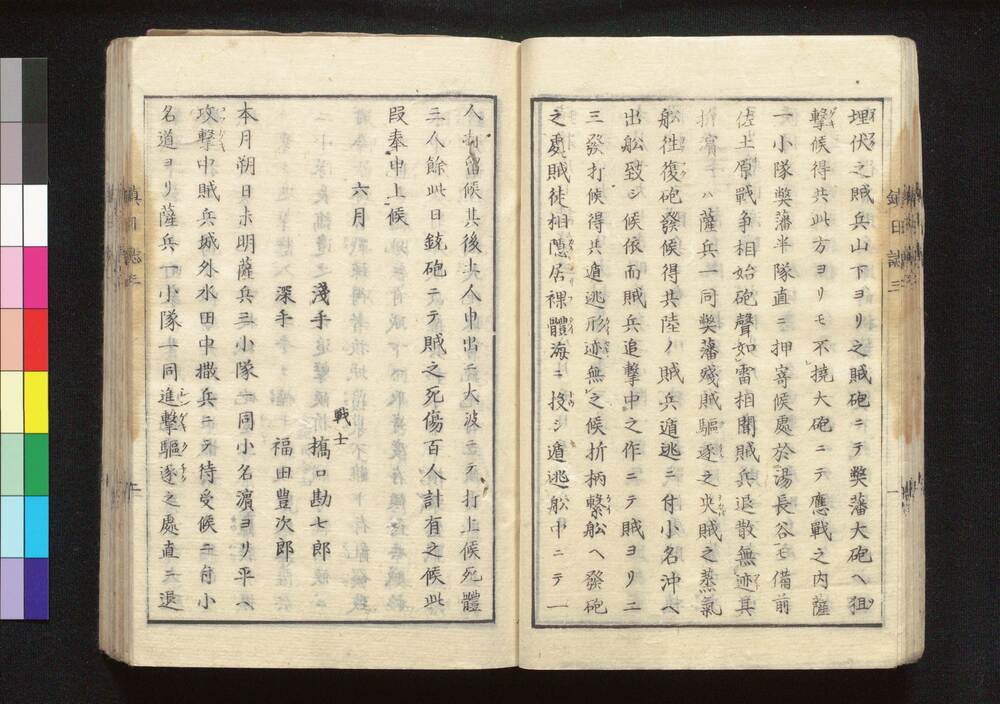 埋伏之賊兵山下ヨリ之賊砲ニテ弊藩大砲ヘ狙
撃候得共此方ヨリモ不撓大砲ニテ應戰之内薩
一小隊弊藩半隊直ニ押寄候處於湯長谷モ備前
佐土原戰争相始砲聲如雷相聞賊兵退散無迹其
折濱手ハ薩兵一同弊藩殘賊驅逐之央賊之蒸氣
舩徃復砲發候得共陸ノ賊兵遁逃ニ付小名沖ヘ
出舩致シ候依而賊兵追撃中之作ニテ賊ヨリ二
三發打候得共遁逃形迹無之候折柄繋舩ヘ發砲
之處賊徒相隠居裸體海ニ投シ遁逃舩中ニテ一
人討留候其後土人申出ニ大波ニテ打上候死體
三人餘此日銃砲ニテ賊之死傷百人計有之候此
段奉申上候
六月
戰士
淺手 橋口勘七郎
深手 福田豊次郎
本月朔日未明薩兵三小隊一同小名濱ヨリ平ヘ
攻撃中賊兵城外水田中撒兵ニテ待受候ニ付小
名道ヨリ薩兵一小隊一同進撃驅逐之處直ニ退
鎮日誌三
一
鎮日誌